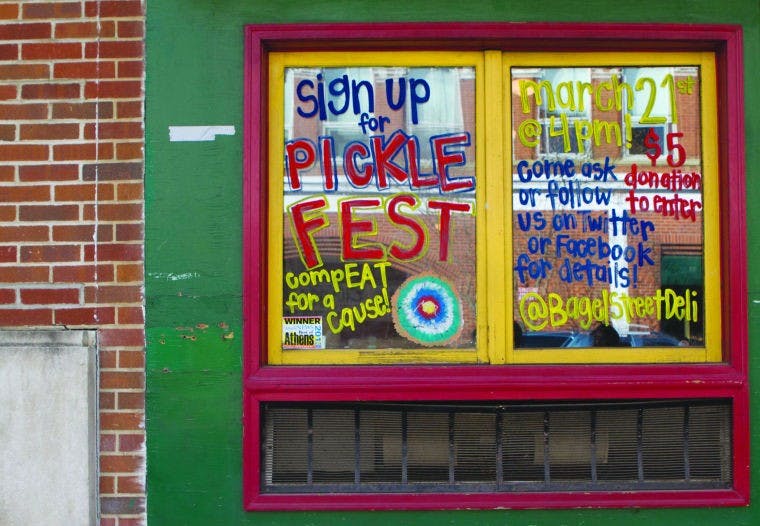 sign up
for
PICKLE
FEST
compEAT
for a
cause!
WINNER
Athens
march 21st
@ 4pm!
$5
donation
to enter
come ask
or follow
us on Twitter
or Facebook
for details!
@BagelStreetDeli